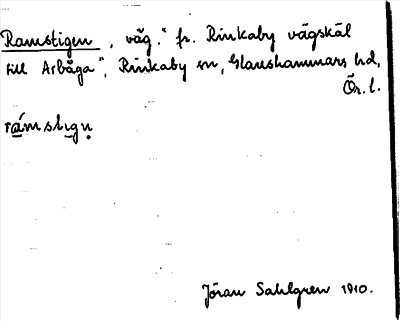 Ramstigen, väg. "fr. Rinkaby vägskäl
till Arboga", Rinkaby sn, Glanshammars hd,
Ör. l.
rámstigṇ
Jöran Sahlgren 1910.